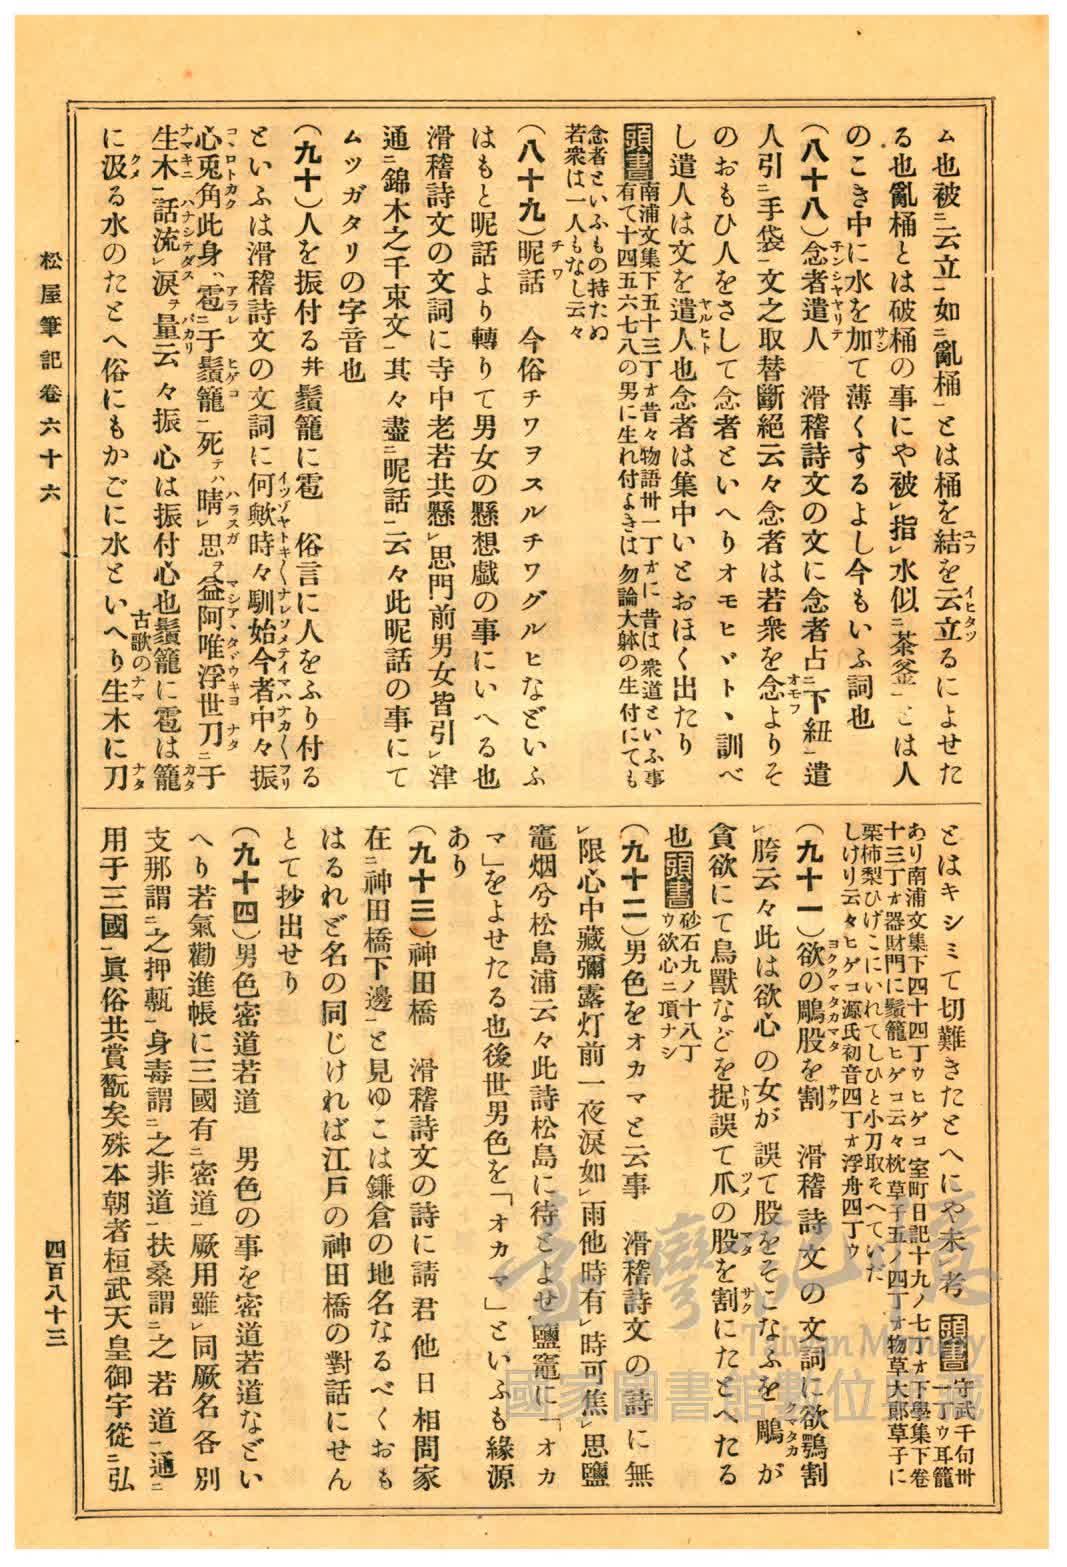 ム也被ニ云立一如ニ亂桶一とは桶を結を云立るによせた
る也亂桶とは破桶の事にや被レ指レ水似ニ茶釜一とは人
のこき中に水を加て薄くするよし今もいふ詞也
(八十八)念者遣人　滑稽詩文の文に念者占ニ下紐一遣
人引ニ手袋一文之取替斷絕云々念者は若衆を念よりそ
のおもひ人をさして念者といへりオモヒヾト丶訓べ
し遣人は文を遣人也念者は集中いとおほく出たり
頭書 南浦文集下五十三丁オ昔々物語卅一丁オに昔は衆道といふ事
有て十四五六七八の男に生れ付よきは勿論大躰の生付にても
念者といふもの持たぬ
若衆は一人もなし云々
(八十九)昵話　今俗チワヲスルチワグルヒなどいふ
はもと昵話より轉りて男女の懸想戲の事にいへる也
滑稽詩文の文詞に寺中老若共懸レ思門前男女皆引レ津
通ニ錦木之千束文一其々盡ニ昵話一云々此昵話の事にて
ムツガタリの字音也
(九十)人を振付る井鬚籠に雹　俗言に人をふり付る
といふは滑稽詩文の文詞に何歟時々馴始今者中々振
心兎角此身、雹ニ于鬚籠一死テハ晴レ思ヲ益阿唯浮世刀ニ于
生木一話流レ淚ヲ量云々振心は振付心也鬚籠に雹は籠
に汲る水のたとへ俗にもかごに水といへり古歌のナマ生木に刀
とはキシミて切難きたとへにや未レ考　頭書 守武千句卅
一丁ウ耳籠
あり南浦文集下四十四丁ウヒゲコ室町日記十九ノ七丁オ下學集下卷
十三丁オ器財門に鬚籠ヒゲコ云々枕草子五ノ四丁オ物草大郞草子に
栗柿梨ひげこにいれてしひと小刀取そへていだ
しけり云々ヒゲコ源氏初音四丁オ浮舟四丁ウ
(九十一)欲の鵰股を割　滑稽詩文の文詞に欲鶚割
レ胯云々此は欲心の女が誤て股をそこなふを鵰が
貪欲にて鳥獸などを捉誤て爪の股を割にたとへたる
也 頭書 砂石九ノ十八丁
ウ欲心ニ頂ナシ
(九十二)男色をオカマと云事　滑稽詩文の詩に無
レ限心中藏彌露灯前一夜淚如レ雨他時有レ時可焦レ思鹽
竈烟兮松島浦云々此詩松島に待とよせ鹽竈に「オカ
マ」をよせたる也後世男色を「オカマ」といふも緣源
あり
(九十三)神田橋　滑稽詩文の詩に請君他日相問家
在ニ神田橋下邊一と見ゆこは鎌倉の地名なるべくおも
はるれど名の同じければ江戶の神田橋の對話にせん
とて抄出せり
(九十四)男色密道若道　男色の事を密道若道などい
へり若氣勸進帳に三國有ニ密道一厥用雖レ同厥名各別
支那謂ニ之押甎一身毒謂ニ之非道一扶桑謂ニ之若道一通ニ
用于三國一眞俗共賞翫矣殊本朝者桓武天皇御宇從ニ弘
松屋筆記卷六十六
四百八十三
臺灣記憶
Taiwan Memory
國家圖書館數位典藏